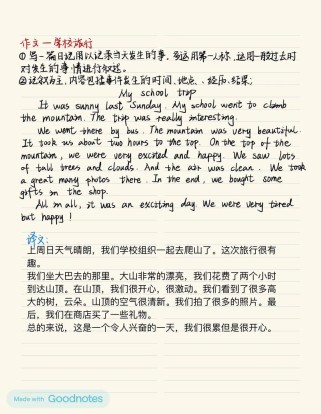 作文一 学校旅行
①写一篇日记用以记录当天发生的事,多运用第一人称,运用一般过去时
对发生的事情进行叙述。
②记叙为主,内容包括事件发生的时间、地点、经历、结果;
My school trip
It was sunny last Sunday. My school went to climb
the mountain. The trip was really interesting.
We went there by bus. The mountain was very beautiful.
It took us about two hours to the top. On the top of the
mountain, we were very excited and happy. We saw lots
of tall trees and clouds. And the air was clean. We took
a great many photos there. In the end, we bought some
gifts in the shop.
All in all, it was an exciting day. We were very tired
but happy!
译文:
上周日天气晴朗,我们学校组织一起去爬山了。这次旅行很有
趣。
我们坐大巴去的那里。大山非常的漂亮,我们花费了两个小时
到达山顶。在山顶,我们很开心,很激动。我们看到了很多高
大的树,云朵。山顶的空气很清新。我们拍了很多的照片。最
后,我们在商店买了一些礼物。
总的来说,这是一个令人兴奋的一天,我们很累但是很开心。
Made with Goodnotes